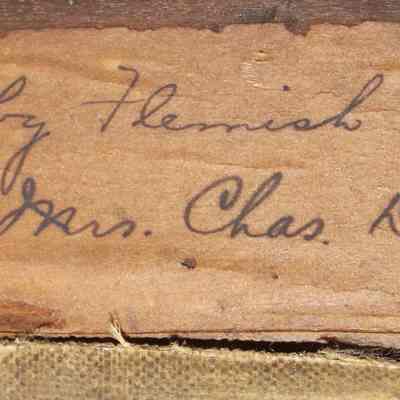 by Flemish
Mrs. Chas.